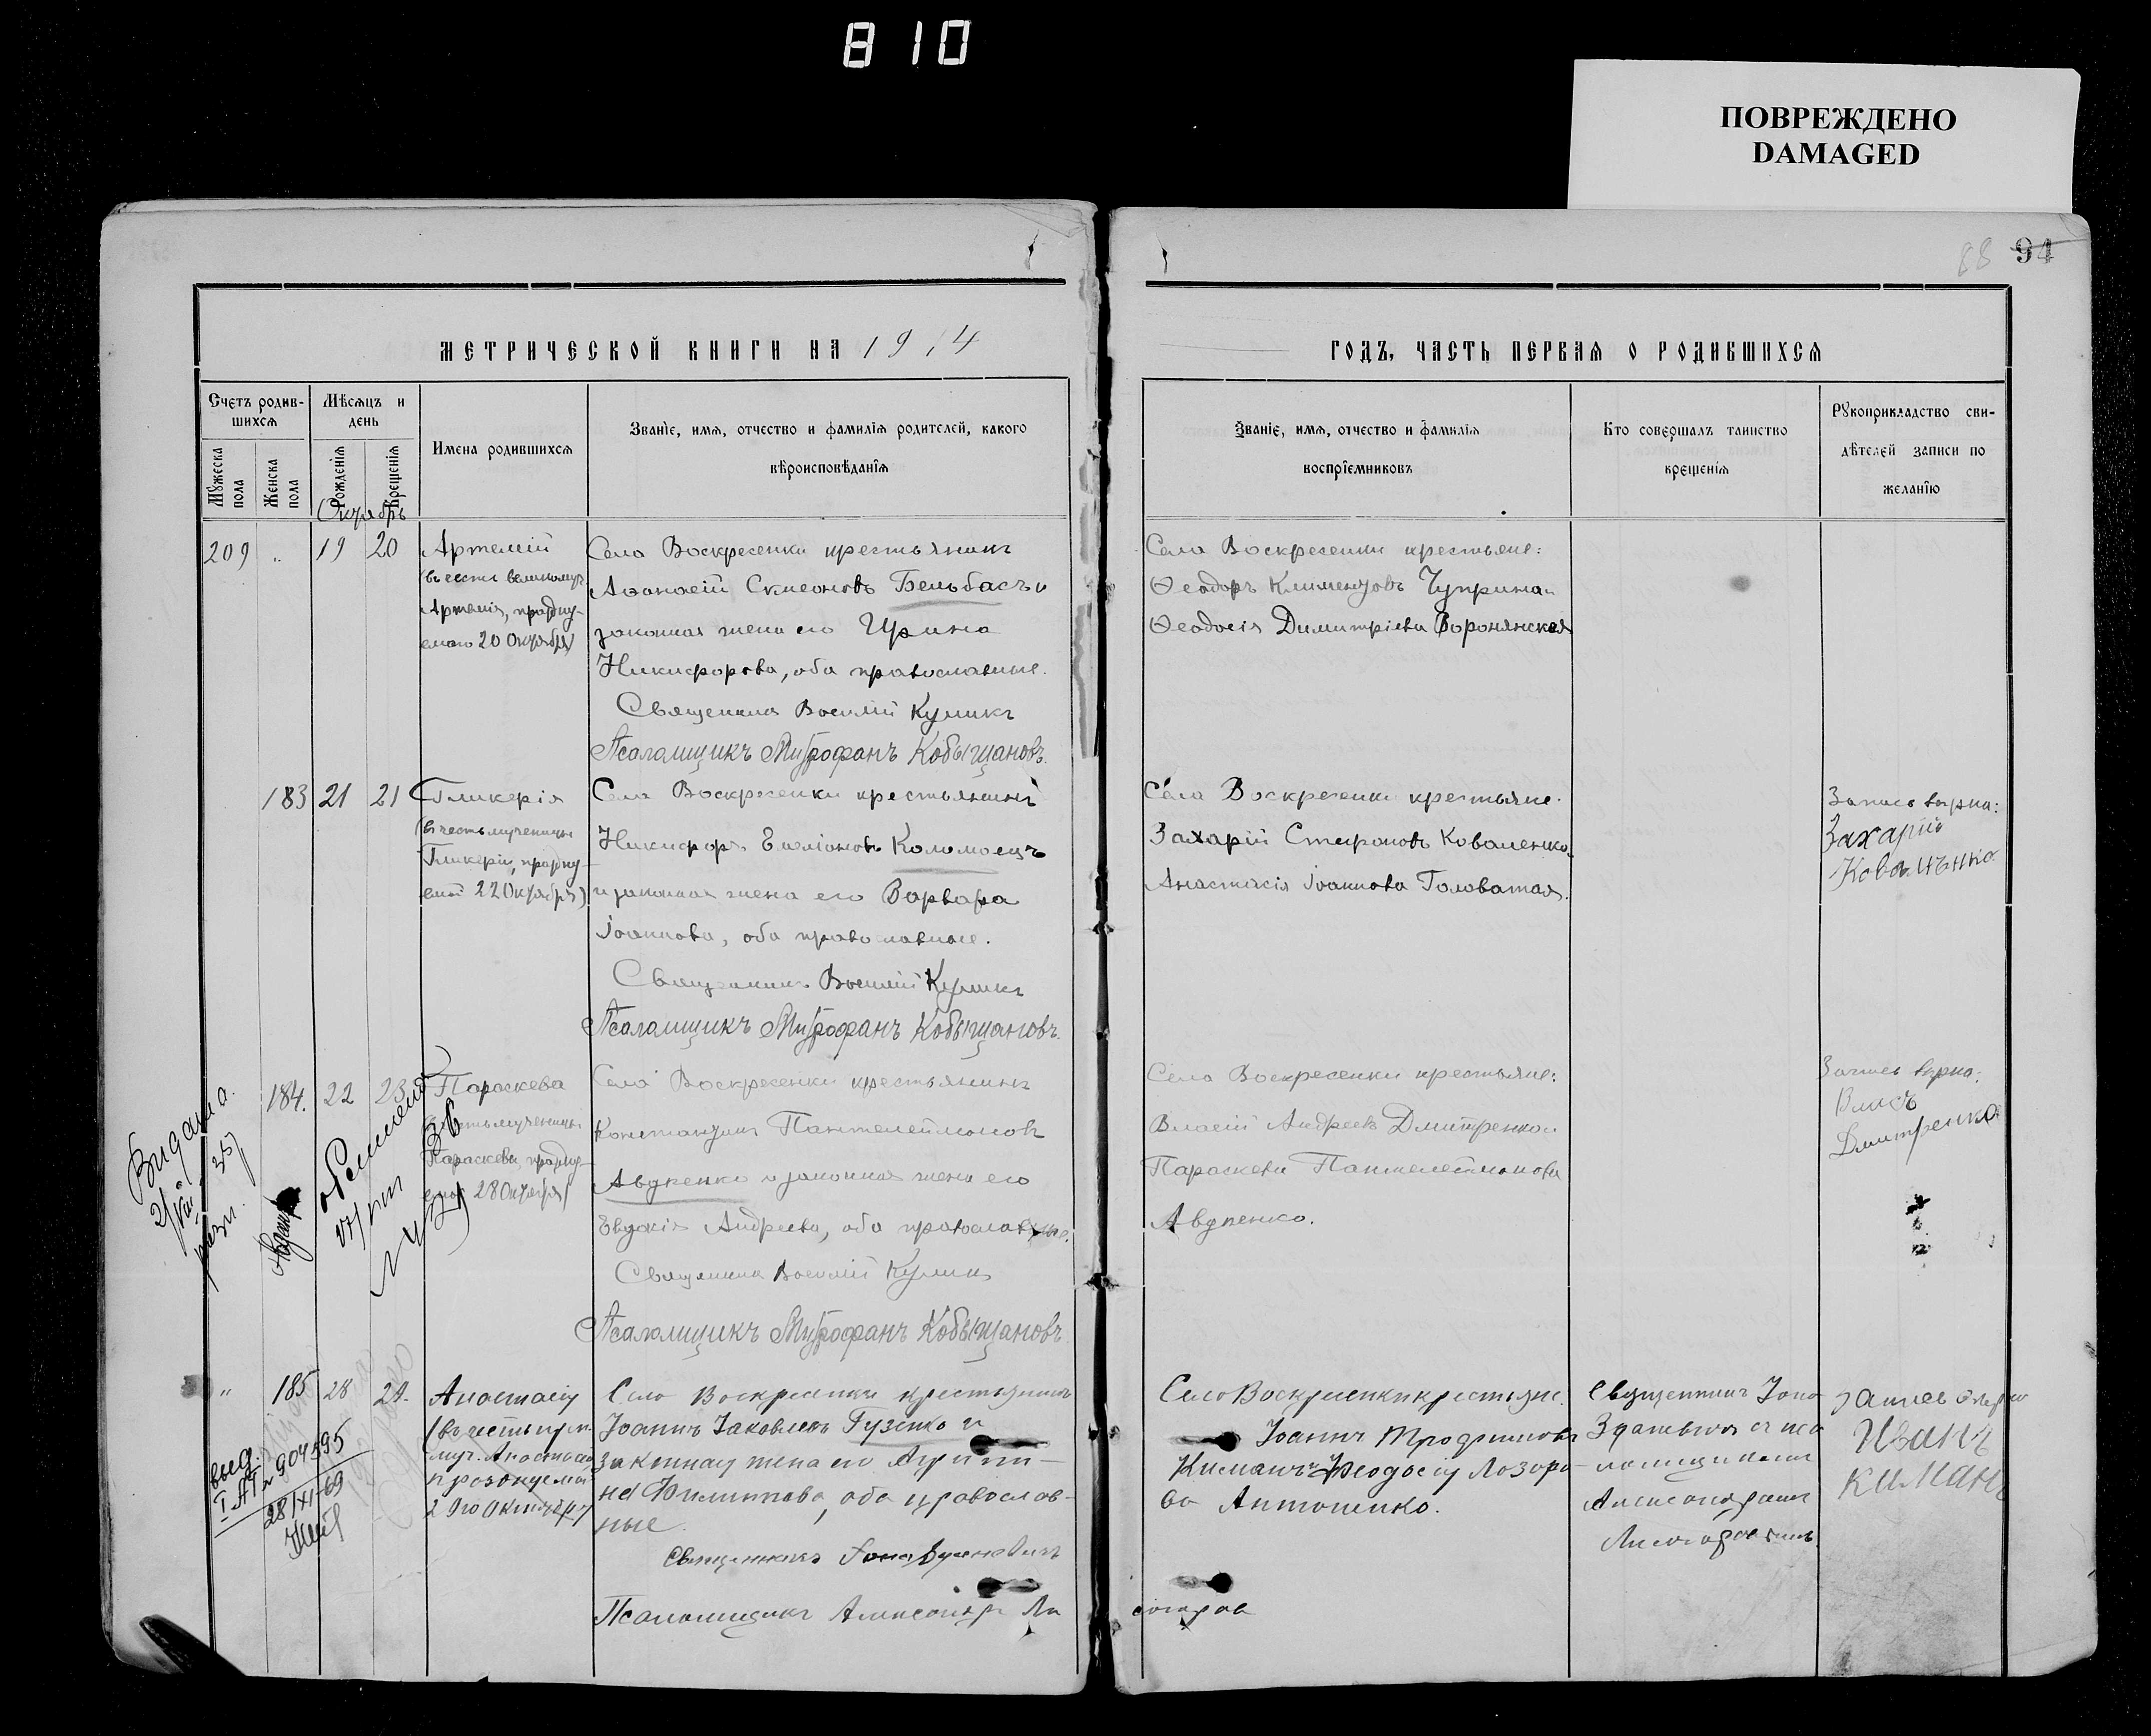 810
ПОВРЕЖДЕНО
DAMAGED
88 94
МЕТРИЧЕСКОЙ КНИГИ НА 1914
ГОДЪ, ЧАСТЬ ПЕРВАЯ О РОДИВШИХСЯ
Счетъ родив-
шихся
Мужеска
пола
Женска
пола
Мѣсяцъ и
день
Рожденія
Крещенія
Имена родившихся
Званіе, имя, отчество и фамилія родителей, какого
вѣроисповѣданія
Званіе, имя, отчество и фамилія
воспріемниковъ
Кто совершалъ таинство
крещенія
Рукоприкладство сви-
дѣтелей записи по
желанію
Октябрь
209 19 20
Артемій
(въ честь великомуч.
Артемія, праздну-
емаго 20 Октября)
Села Воскресенки крестьянинъ
Аѳанасій Симеоновъ Бельбасъ и
законная жена его Ирина
Никифорова, оба православные.
Священникъ Василій Куликъ
Псаломщикъ Митрофанъ Кобыщановъ.
Села Воскресенки крестьяне:
Ѳеодоръ Климентовъ Чуприна и
Ѳеодосія Димитріева Воронянская
183 21 21
Гликерія
(въ честь мученицы
Гликеріи, праздну-
емой 22 Октября)
Села Воскресенки крестьянинъ
Никифоръ Коломоецъ
и законная жена его Варвара
Іоаннова, оба православные.
Священникъ Василій Куликъ
Псаломщикъ Митрофанъ Кобыщановъ.
Села Воскресенки крестьяне:
Захарій Стефановъ Коваленко
Анастасія Іоаннова Головатая.
Запись вѣрна:
Захарій
184. 22 23
Параскева
(въ честь мученицы
Параскевы, праздну-
емой 28 Октября)
Села Воскресенки крестьянинъ
Константинъ Пантелеймоновъ
Авдѣенко и законная жена его
Евдокія Андреева, оба православные.
Священникъ Василій Куликъ
Псаломщикъ Митрофанъ Кобыщановъ.
Села Воскресенки крестьяне:
Власій Андреевъ Дмитренко и
Параскева Пантелеймонова
Запись вѣрна:
Власъ
Дмитренко
Видана
" 185 28 29.
Анастасія
(въ честь прп.
муч. Анастасіи
празднуемой
29го Октября)
Село Воскресенки крестьянинъ
Іоаннъ Іаковлевъ Гузенко и
законная жена его Агрипи-
на Филиппова, оба православ-
ные.
Священникъ Іона
Псаломщикъ Александръ
Село Воскресенки крестьяне.
Іоаннъ Трофимовъ
Киманъ и Ѳеодосія Лазаре-
ва Антошенко.
Священникъ Іона
Александромъ
Запись вѣрна
Иванъ
Киманъ
выд.
904595
28/XI-69